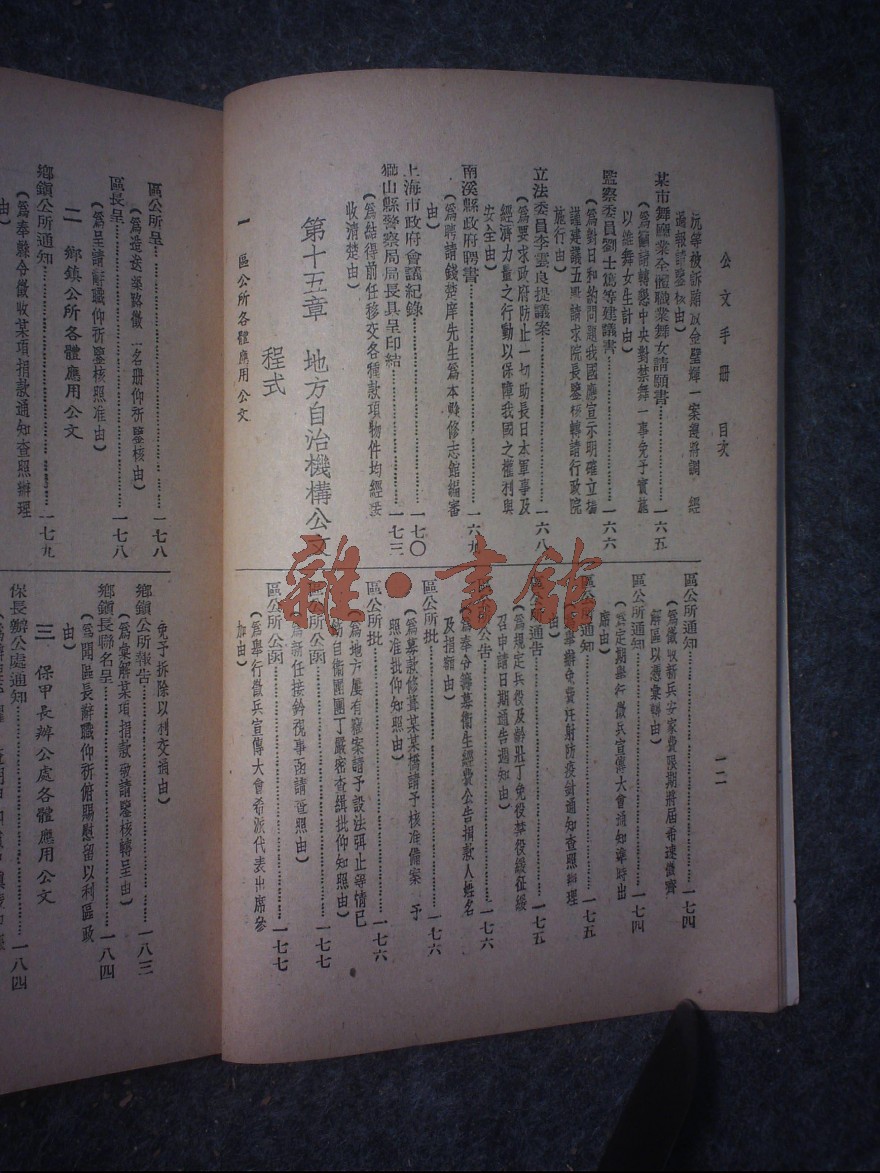 公文手冊　目次
一二
通報請鑒核由）
某市舞國業全體職業舞女請願書……一六五
（爲籲請轉懇中央對禁舞一事免予實施
以維舞女生計由）
監察委員劉士篤等建議書……一六六
（爲對日和約問題我國應宣示明確立場
謹建議五點請求院長鑒核轉請行政院
施行由）
立法委員李雲良提議案……一六八
（爲要求政府防止一切助長日本軍事及
經濟力量之行動以保障我國之權利與
安全由）
南溪縣政府聘書……一六九
（爲聘請錢楚席先生爲本縣修志館編審
由）
上海市政府會議紀錄……一七〇
山縣警察局局長具呈印結……一七三
（爲結得前任移交各種款項物件均經接
收清楚由）
第十五章　地方自治機構公文
程式
一　區公所各體應用公文
區公所通知……一七四
（爲徵收新兵安家費限期將屆希速徵齊
解區以憑彙轉由）
區公所通知……一七四
（爲定期舉行徵兵宣傳大會通知準時出
席由）
區公所通知……一七五
辦免費注射防疫針通知查照辦理
由）
區公所通告……一七五
（爲規定兵役及齡壯丁免役禁役緩征緩
召申請日期通告週知由）
區公所公告……一七六
（爲奉令籌募衞生經費公告捐款人姓名
及捐額由）
區公所批……一七六
（爲募款修葺某某橋請予核准備案　予
照准批仰知照由）
區公所批……一七六
（爲地方屢有竊案請予設法弭止等情已
飭自衞團團丁嚴密查緝批仰知照由）
區公所公函……一七七
（爲新任接鈐視事函請查照由）
區公所公函……一七七
（爲舉行徵兵宣傳大會希派代表出席參
加由）
區公所呈……一七八
（爲造送築路徵工名册仰祈鑒核由）
區長呈……一七八
（爲呈請辭職仰祈鑒核照准由）
二　鄉鎮公所各體應用公文
鄉鎮公所通知……一七九
（爲奉縣令徵收某項捐款通知查照辦理
由）
免予拆除以利交通由）
鄉鎮公所報告……一八三
（爲彙解某項捐款敬請鑒核轉呈由）
鄉鎮長聯名呈……一八四
（爲聞區長辭職仰祈俯賜慰留以利區政
由）
三　保甲長辦公處各體應用公文
保長辦公處通知……一八四
雜·書館